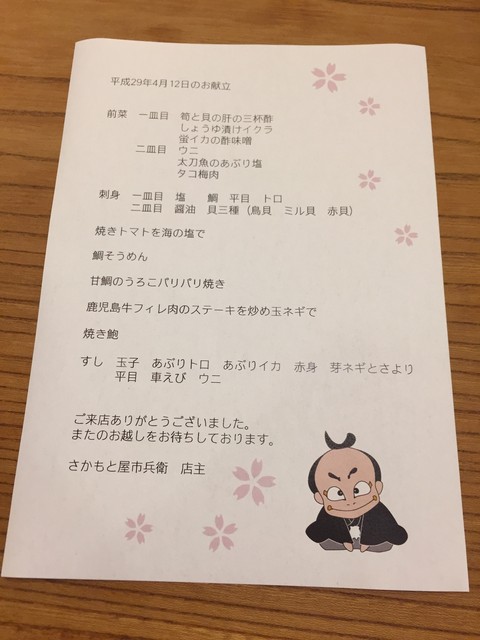 平成29年4月12日のお献立
前菜 一皿目 筍と貝の肝の三杯酢
しょうゆ漬けイクラ
蛍イカの酢味噌
二皿目 ウニ
太刀魚のあぶり塩
タコ梅肉
刺身 一皿目 塩 鯛 平目 トロ
二皿目 醤油 貝三種（鳥貝 ミル貝 赤貝）
焼きトマトを海の塩で
鯛そうめん
甘鯛のうろこパリパリ焼き
鹿児島牛フィレ肉のステーキを炒め玉ネギで
焼き鮑
すし 玉子 あぶりトロ あぶりイカ 赤身 芽ネギとさより
平目 車えび ウニ
ご来店ありがとうございました。
またのお越しをお待ちしております。
さかもと屋市兵衛 店主